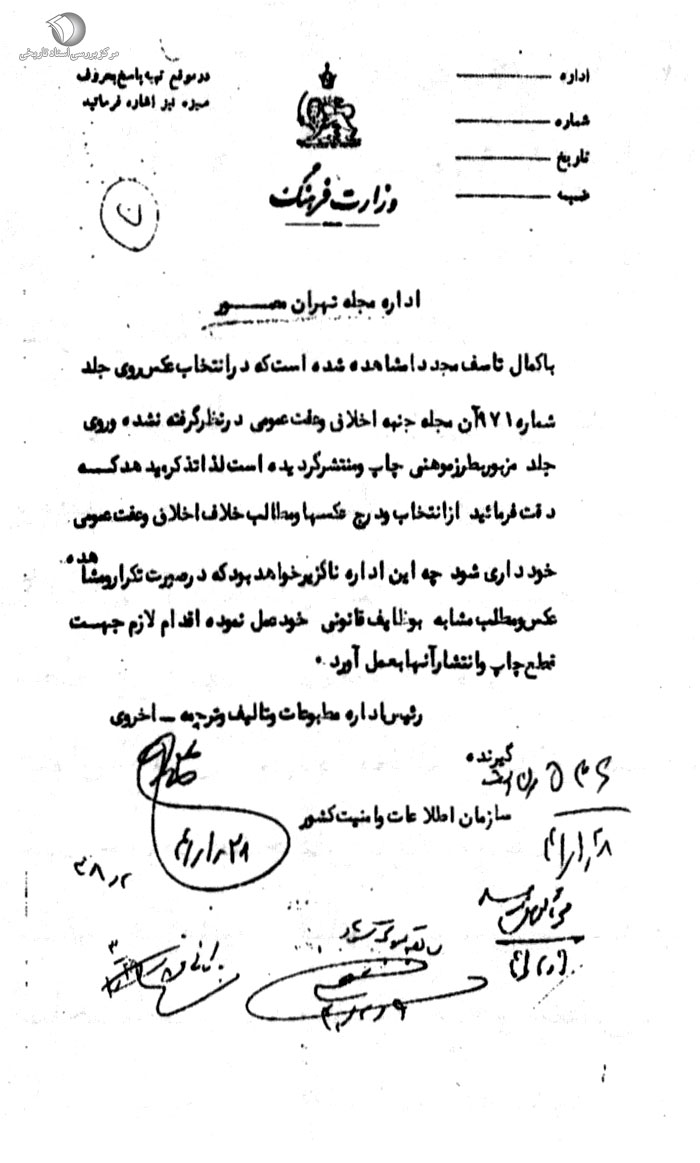 مرکز بررسی اسناد تاریخی
در موقع تهیه پاسخ بحروف
میزه نیز اشاره فرمائید
اداره
شماره
تاریخ
ضمیمه
ن
وزارت فرهنگ
اداره مجله تهران مصور
با کمال تاسف مجددا مشاهده شده است که در انتخاب عکس روی جلد
شماره ۹۷۱ آن مجله جنبه اخلاقی و عفت عمومی در نظر گرفته نشده و روی
جلد مزبور بطرز موهنی چاپ و منتشر گردیده است لذا تذکر میدهد که
دقت فرمائید از انتخاب و درج عکسها و مطالب خلاف اخلاق و عفت عمومی
خودداری شود چه این اداره ناگزیر خواهد بود که در صورت تکرار و مشاهده
عکس و مطلب مشابه بوظایف قانونی خود عمل نموده اقدام لازم جهت
قطع چاپ و انتشار آنها بعمل آورد.
رئیس اداره مطبوعات و تالیف و ترجمه - اخروی
گیرنده
سازمان اطلاعات و امنیت کشور